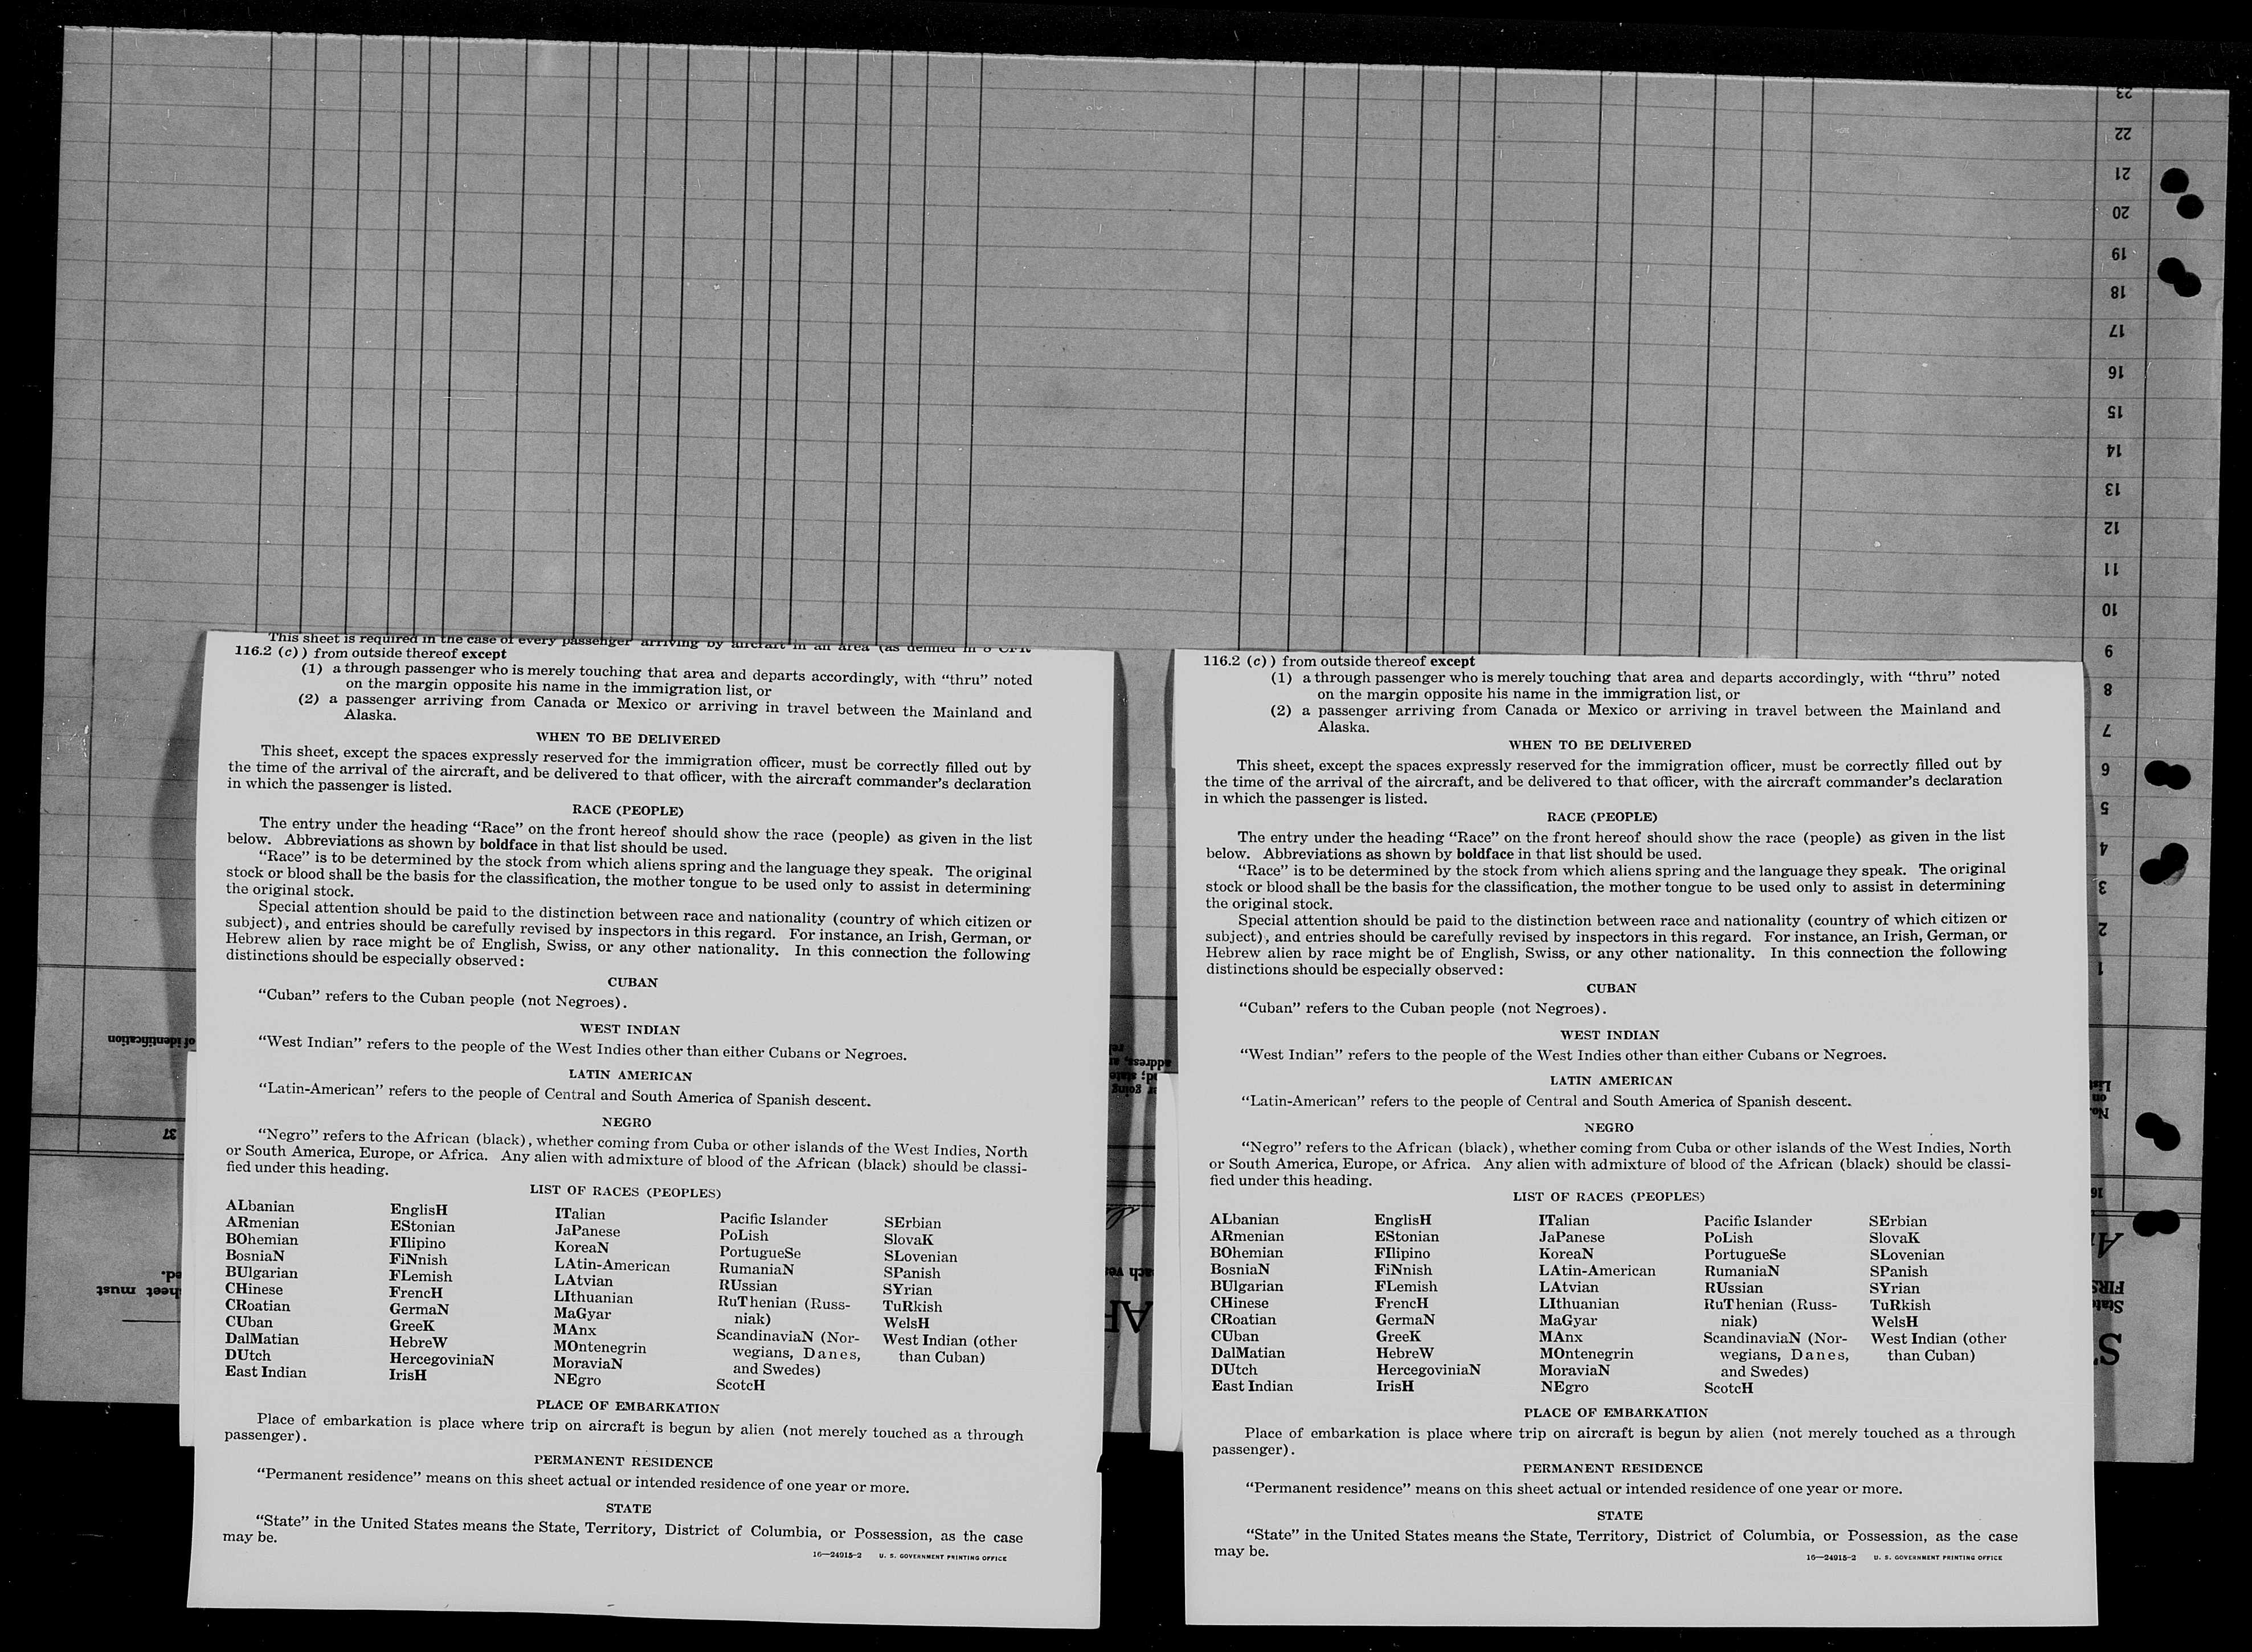 This sheet is required in the case of every passenger arriving by aircraft in an area (as defined in 8 CFR
116.2 (c)) from outside thereof except
(1) a through passenger who is merely touching that area and departs accordingly, with “thru” noted
on the margin opposite his name in the immigration list, or
(2) a passenger arriving from Canada or Mexico or arriving in travel between the Mainland and
Alaska.
WHEN TO BE DELIVERED
This sheet, except the spaces expressly reserved for the immigration officer, must be correctly filled out by
the time of the arrival of the aircraft, and be delivered to that officer, with the aircraft commander’s declaration
in which the passenger is listed.
RACE (PEOPLE)
The entry under the heading “Race” on the front hereof should show the race (people) as given in the list
below. Abbreviations as shown by boldface in that list should be used.
“Race” is to be determined by the stock from which aliens spring and the language they speak. The original
stock or blood shall be the basis for the classification, the mother tongue to be used only to assist in determining
the original stock.
Special attention should be paid to the distinction between race and nationality (country of which citizen or
subject), and entries should be carefully revised by inspectors in this regard. For instance, an Irish, German, or
Hebrew alien by race might be of English, Swiss, or any other nationality. In this connection the following
distinctions should be especially observed:
CUBAN
“Cuban” refers to the Cuban people (not Negroes).
WEST INDIAN
“West Indian” refers to the people of the West Indies other than either Cubans or Negroes.
LATIN AMERICAN
“Latin-American” refers to the people of Central and South America of Spanish descent.
NEGRO
“Negro” refers to the African (black), whether coming from Cuba or other islands of the West Indies, North
or South America, Europe, or Africa. Any alien with admixture of blood of the African (black) should be classi-
fied under this heading.
LIST OF RACES (PEOPLES)
ALbanian
ARmenian
BOhemian
BosniaN
BUlgarian
CHinese
CRoatian
CUban
DalMatian
DUtch
East Indian
EnglisH
EStonian
FIlipino
FiNnish
FLemish
FrencH
GermaN
GreeK
HebreW
HercegoviniaN
IrisH
ITalian
JaPanese
KoreaN
LAtin-American
LAtvian
LIthuanian
MaGyar
MAnx
MOntenegrin
MoraviaN
NEgro
Pacific Islander
PoLish
PortugueSe
RumaniaN
RUssian
RuThenian (Russ-
niak)
ScandinaviaN (Nor-
wegians, Danes,
and Swedes)
ScotcH
SErbian
SlovaK
SLovenian
SPanish
SYrian
TuRkish
WelsH
West Indian (other
than Cuban)
PLACE OF EMBARKATION
Place of embarkation is place where trip on aircraft is begun by alien (not merely touched as a through
passenger).
PERMANENT RESIDENCE
“Permanent residence” means on this sheet actual or intended residence of one year or more.
STATE
“State” in the United States means the State, Territory, District of Columbia, or Possession, as the case
may be.
16—24915-2 U. S. GOVERNMENT PRINTING OFFICE
116.2 (c)) from outside thereof except
(1) a through passenger who is merely touching that area and departs accordingly, with “thru” noted
on the margin opposite his name in the immigration list, or
(2) a passenger arriving from Canada or Mexico or arriving in travel between the Mainland and
Alaska.
WHEN TO BE DELIVERED
This sheet, except the spaces expressly reserved for the immigration officer, must be correctly filled out by
the time of the arrival of the aircraft, and be delivered to that officer, with the aircraft commander’s declaration
in which the passenger is listed.
RACE (PEOPLE)
The entry under the heading “Race” on the front hereof should show the race (people) as given in the list
below. Abbreviations as shown by boldface in that list should be used.
“Race” is to be determined by the stock from which aliens spring and the language they speak. The original
stock or blood shall be the basis for the classification, the mother tongue to be used only to assist in determining
the original stock.
Special attention should be paid to the distinction between race and nationality (country of which citizen or
subject), and entries should be carefully revised by inspectors in this regard. For instance, an Irish, German, or
Hebrew alien by race might be of English, Swiss, or any other nationality. In this connection the following
distinctions should be especially observed:
CUBAN
“Cuban” refers to the Cuban people (not Negroes).
WEST INDIAN
“West Indian” refers to the people of the West Indies other than either Cubans or Negroes.
LATIN AMERICAN
“Latin-American” refers to the people of Central and South America of Spanish descent.
NEGRO
“Negro” refers to the African (black), whether coming from Cuba or other islands of the West Indies, North
or South America, Europe, or Africa. Any alien with admixture of blood of the African (black) should be classi-
fied under this heading.
LIST OF RACES (PEOPLES)
ALbanian
ARmenian
BOhemian
BosniaN
BUlgarian
CHinese
CRoatian
CUban
DalMatian
DUtch
East Indian
EnglisH
EStonian
FIlipino
FiNnish
FLemish
FrencH
GermaN
GreeK
HebreW
HercegoviniaN
IrisH
ITalian
JaPanese
KoreaN
LAtin-American
LAtvian
LIthuanian
MaGyar
MAnx
MOntenegrin
MoraviaN
NEgro
Pacific Islander
PoLish
PortugueSe
RumaniaN
RUssian
RuThenian (Russ-
niak)
ScandinaviaN (Nor-
wegians, Danes,
and Swedes)
ScotcH
SErbian
SlovaK
SLovenian
SPanish
SYrian
TuRkish
WelsH
West Indian (other
than Cuban)
PLACE OF EMBARKATION
Place of embarkation is place where trip on aircraft is begun by alien (not merely touched as a through
passenger).
PERMANENT RESIDENCE
“Permanent residence” means on this sheet actual or intended residence of one year or more.
STATE
“State” in the United States means the State, Territory, District of Columbia, or Possession, as the case
may be.
16—24915-2 U. S. GOVERNMENT PRINTING OFFICE
No.
on
List
1
2
3
4
5
6
7
8
9
10
11
12
13
14
15
16
17
18
19
20
21
22
23
sheet must
of identification
37